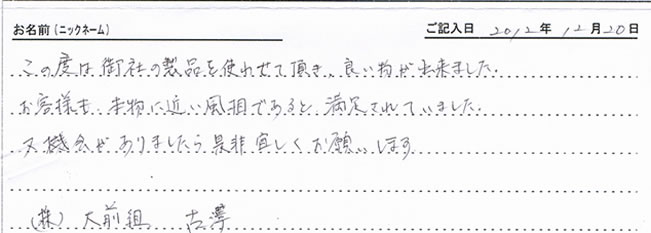 お名前(ニックネーム) ご記入日 2012年 12月20日
この度は御社の製品を使わせて頂き、良い物が出来ました.
お客様も、本物に近い風相であると、満足されていました.
又機会がありましたら是非宜しくお願いします
(株) 大前組 古澤